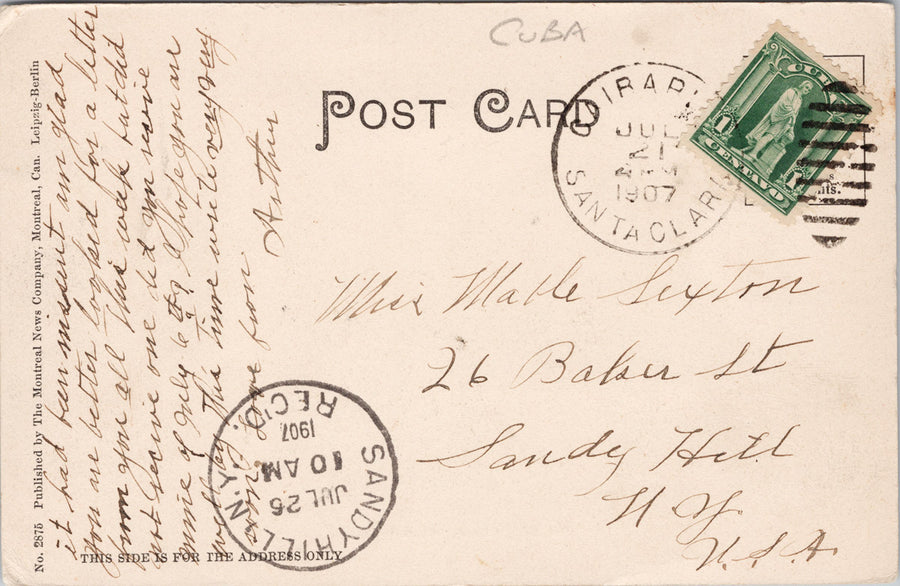 CUBA
POST CARD
QUIRABI
SANTA CLARA
JUL
1907
CUBA
1 CENTAVO 1
Miss Mable Sexton
26 Baker St
Sandy Hill
N.Y.
U.S.A.
SANDY HILL, N.Y.
JUL 26
10 AM
1907
REC'D.
THIS SIDE IS FOR THE ADDRESS ONLY
No. 2875 Published by The Montreal News Company, Montreal, Can. Leipzig-Berlin
it had been missent um glad
you are better looked for a letter
from you all this week but did
not receive one did you receive
mine of July 6th? I hope you are
well by this time write very
Love from Arthur